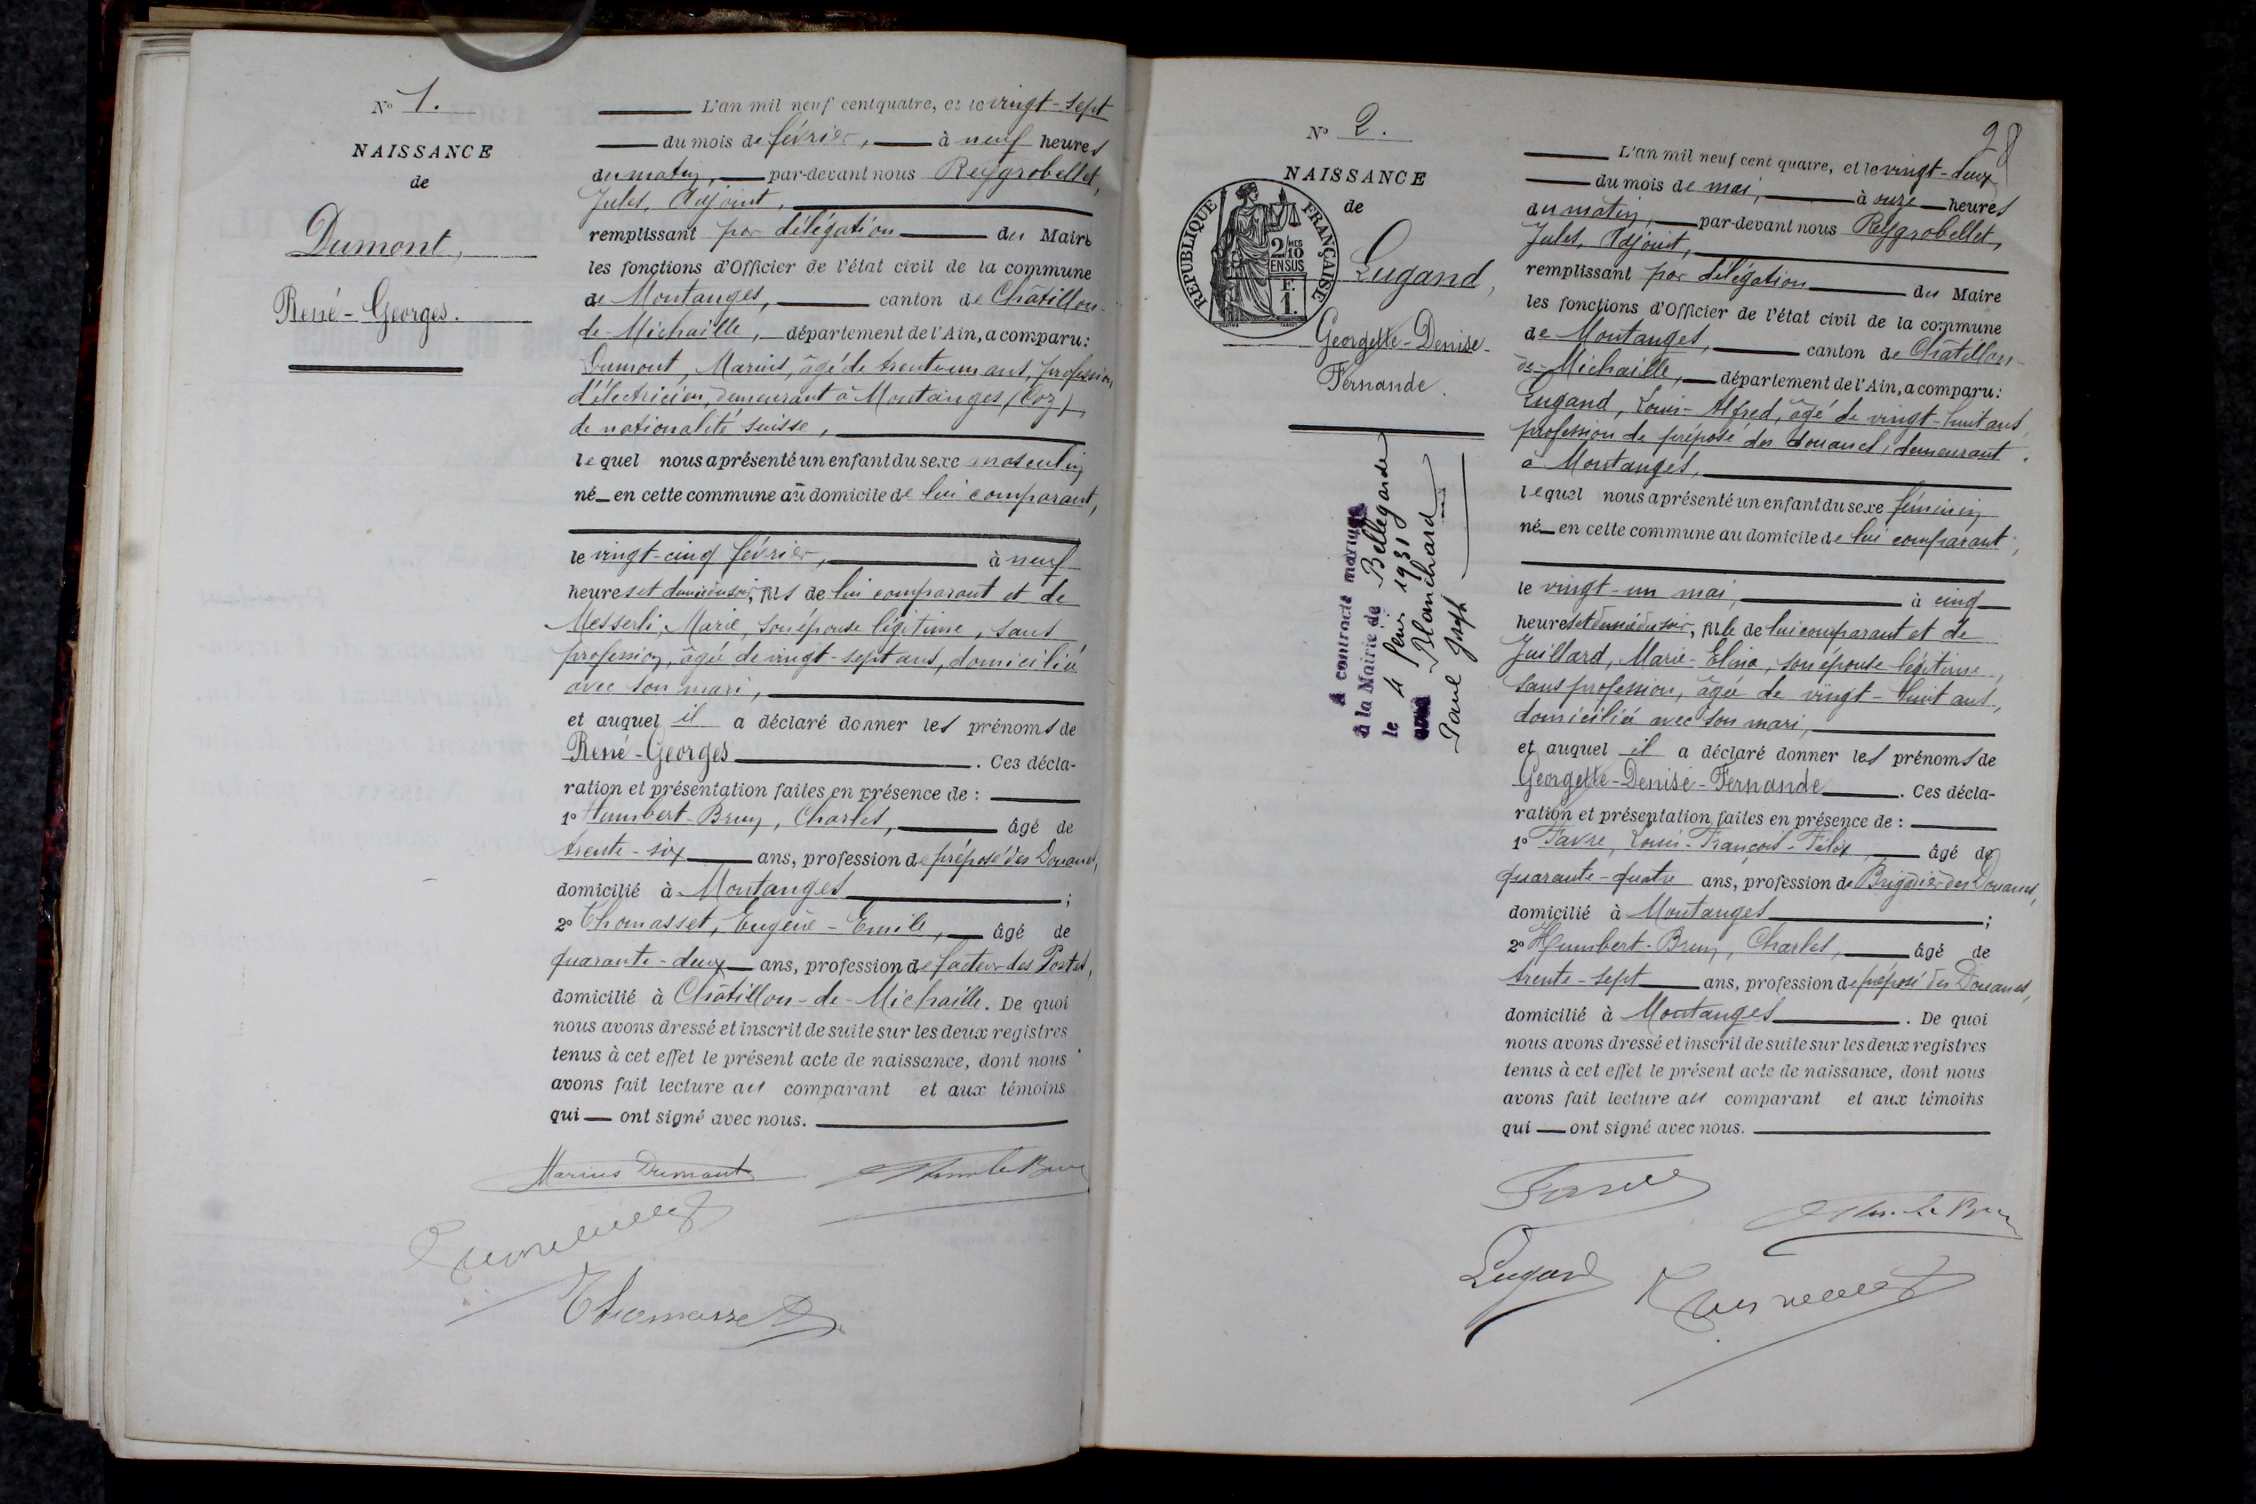 N° 1.
NAISSANCE
de
Dumont,
René-Georges.
L'an mil neuf cent quatre, et le vingt-sept
du mois de février, à neuf heures
du matin, par-devant nous Reygrobellet,
Jules, Adjoint,
remplissant par délégation du Maire
les fonctions d'Officier de l'état civil de la commune
de Montanges, canton de Châtillon-
de-Michaille, département de l'Ain, a comparu:
Dumont, Marius, âgé de trente un ans, profession
d'électricien, demeurant à Montanges (Coz),
de nationalité suisse,
lequel nous a présenté un enfant du sexe masculin
né en cette commune au domicile de lui comparant,
le vingt-cinq février, à neuf
heures et demie du soir, fils de lui comparant et de
Messerli, Marie, son épouse légitime, sans
profession, âgée de vingt-sept ans, domiciliée
avec son mari,
et auquel il a déclaré donner les prénoms de
René-Georges. Ces décla-
ration et présentation faites en présence de :
1° Humbert-Brun, Charles, âgé de
trente-six ans, profession de préposé des Douanes,
domicilié à Montanges ;
2° Thomasset, Eugène-Emile, âgé de
quarante-deux ans, profession de facteur des Postes,
domicilié à Châtillon-de-Michaille. De quoi
nous avons dressé et inscrit de suite sur les deux registres
tenus à cet effet le présent acte de naissance, dont nous
avons fait lecture au comparant et aux témoins
qui ont signé avec nous.
Marius Dumont
Thomasset
28
N° 2.
NAISSANCE
de
RÉPUBLIQUE FRANÇAISE
2/10 MES
EN SUS
F.
1.
Lugand,
Georgette-Denise-
Fernande.
A contracté mariage
à la Mairie de Bellegarde
le 4 1931
avec Blanchard
Paul Joseph
L'an mil neuf cent quatre, et le vingt-deux
du mois de mai, à onze heures
du matin, par-devant nous Reygrobellet,
Jules, Adjoint,
remplissant par délégation du Maire
les fonctions d'Officier de l'état civil de la commune
de Montanges, canton de Châtillon-
de-Michaille, département de l'Ain, a comparu:
Lugand, Louis-Alfred, âgé de vingt-huit ans,
profession de préposé des douanes, demeurant
à Montanges,
lequel nous a présenté un enfant du sexe féminin
né en cette commune au domicile de lui comparant,
le vingt-un mai, à cinq
heures et demie du soir, fille de lui comparant et de
Juillard, Marie-Elina, son épouse légitime,
sans profession, âgée de vingt-huit ans,
domiciliée avec son mari,
et auquel il a déclaré donner les prénoms de
Georgette-Denise-Fernande. Ces décla-
ration et présentation faites en présence de :
1° Favre, Louis-François-Félix, âgé de
quarante-quatre ans, profession de Brigadier des Douanes,
domicilié à Montanges ;
2° Humbert-Brun, Charles, âgé de
trente-sept ans, profession de préposé des Douanes,
domicilié à Montanges. De quoi
nous avons dressé et inscrit de suite sur les deux registres
tenus à cet effet le présent acte de naissance, dont nous
avons fait lecture au comparant et aux témoins
qui ont signé avec nous.
Favre
Lugand